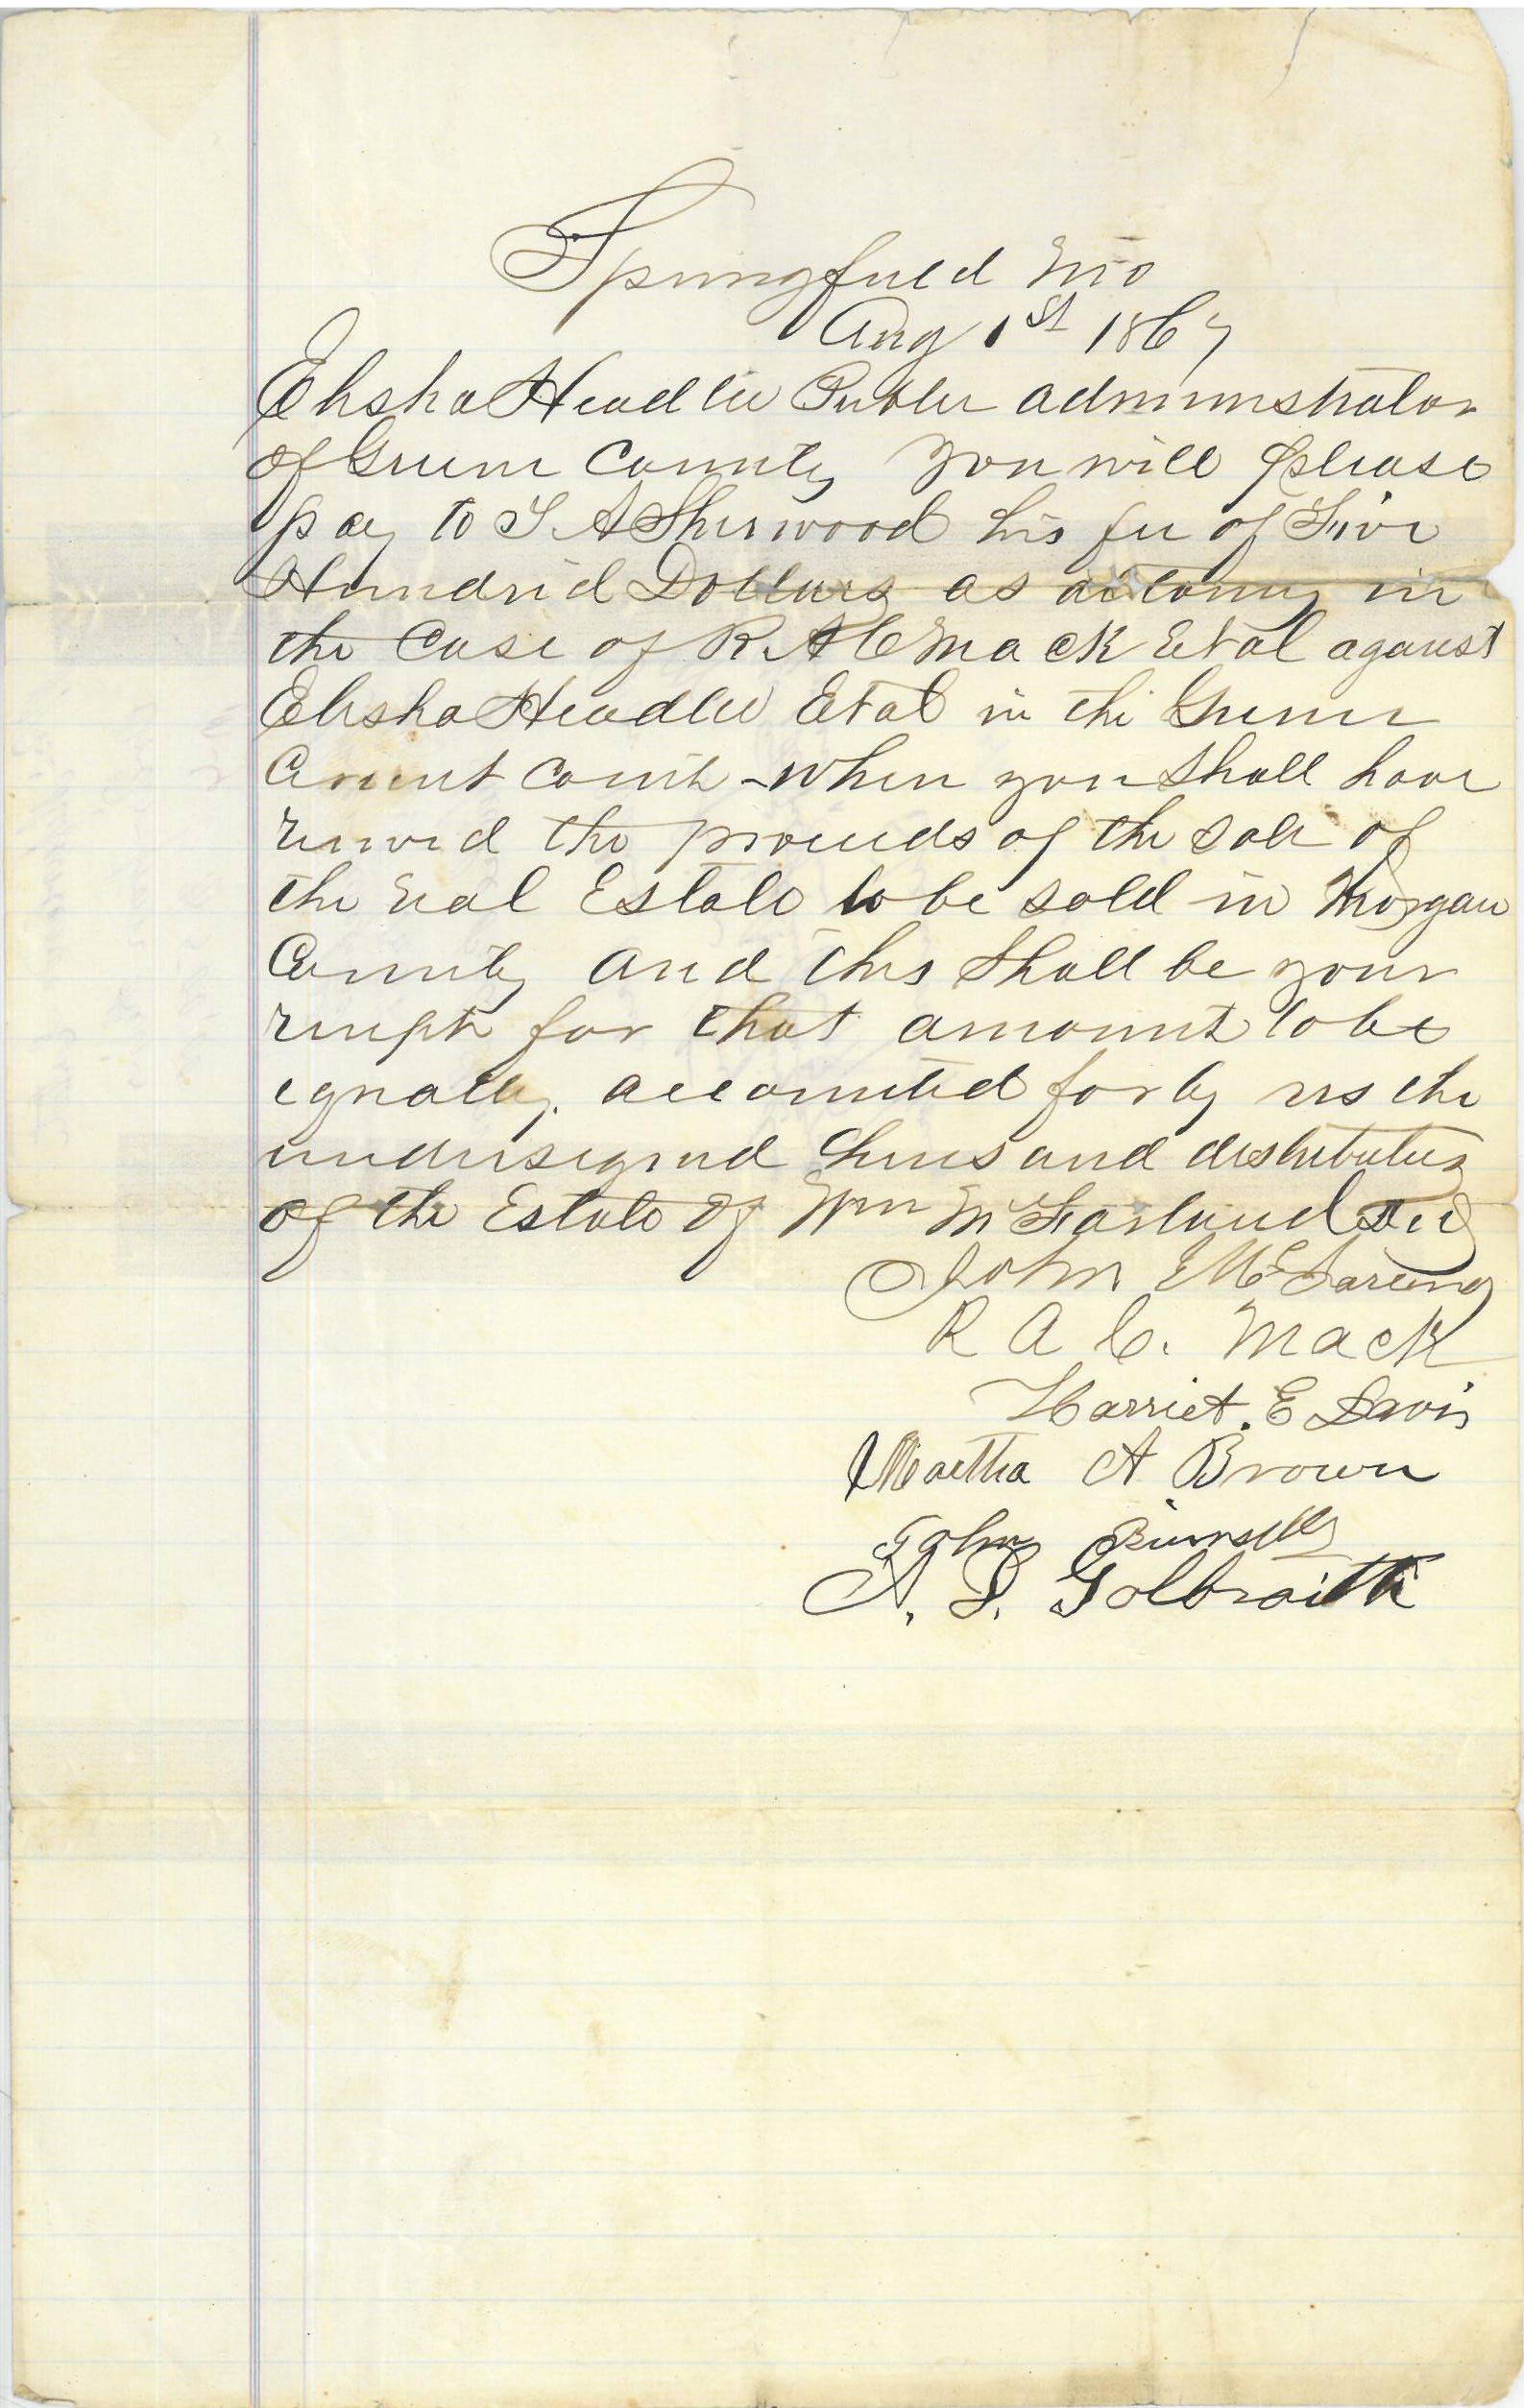 Springfield Mo
Aug 1st 1867
Elisha Headlee Public administrator
of Greene County you will please
pay to T. A Sherwood his fee of Five
Hundred Dollars as attorney in
the Case of R. A C Mack Et al against
Elisha Headlee Et al in the Greene
Circuit Court - when you shall have
received the proceeds of the sale of
the real Estate to be sold in Morgan
County and this shall be your
receipt for that amount to be
equally. accounted for by us the
undersigned heirs and distributees
of the Estate of Wm McFarland decd
John McFarland
R A C. Mack
Harriet. E Davis
Martha A Brown
John
A. D. Golbraith